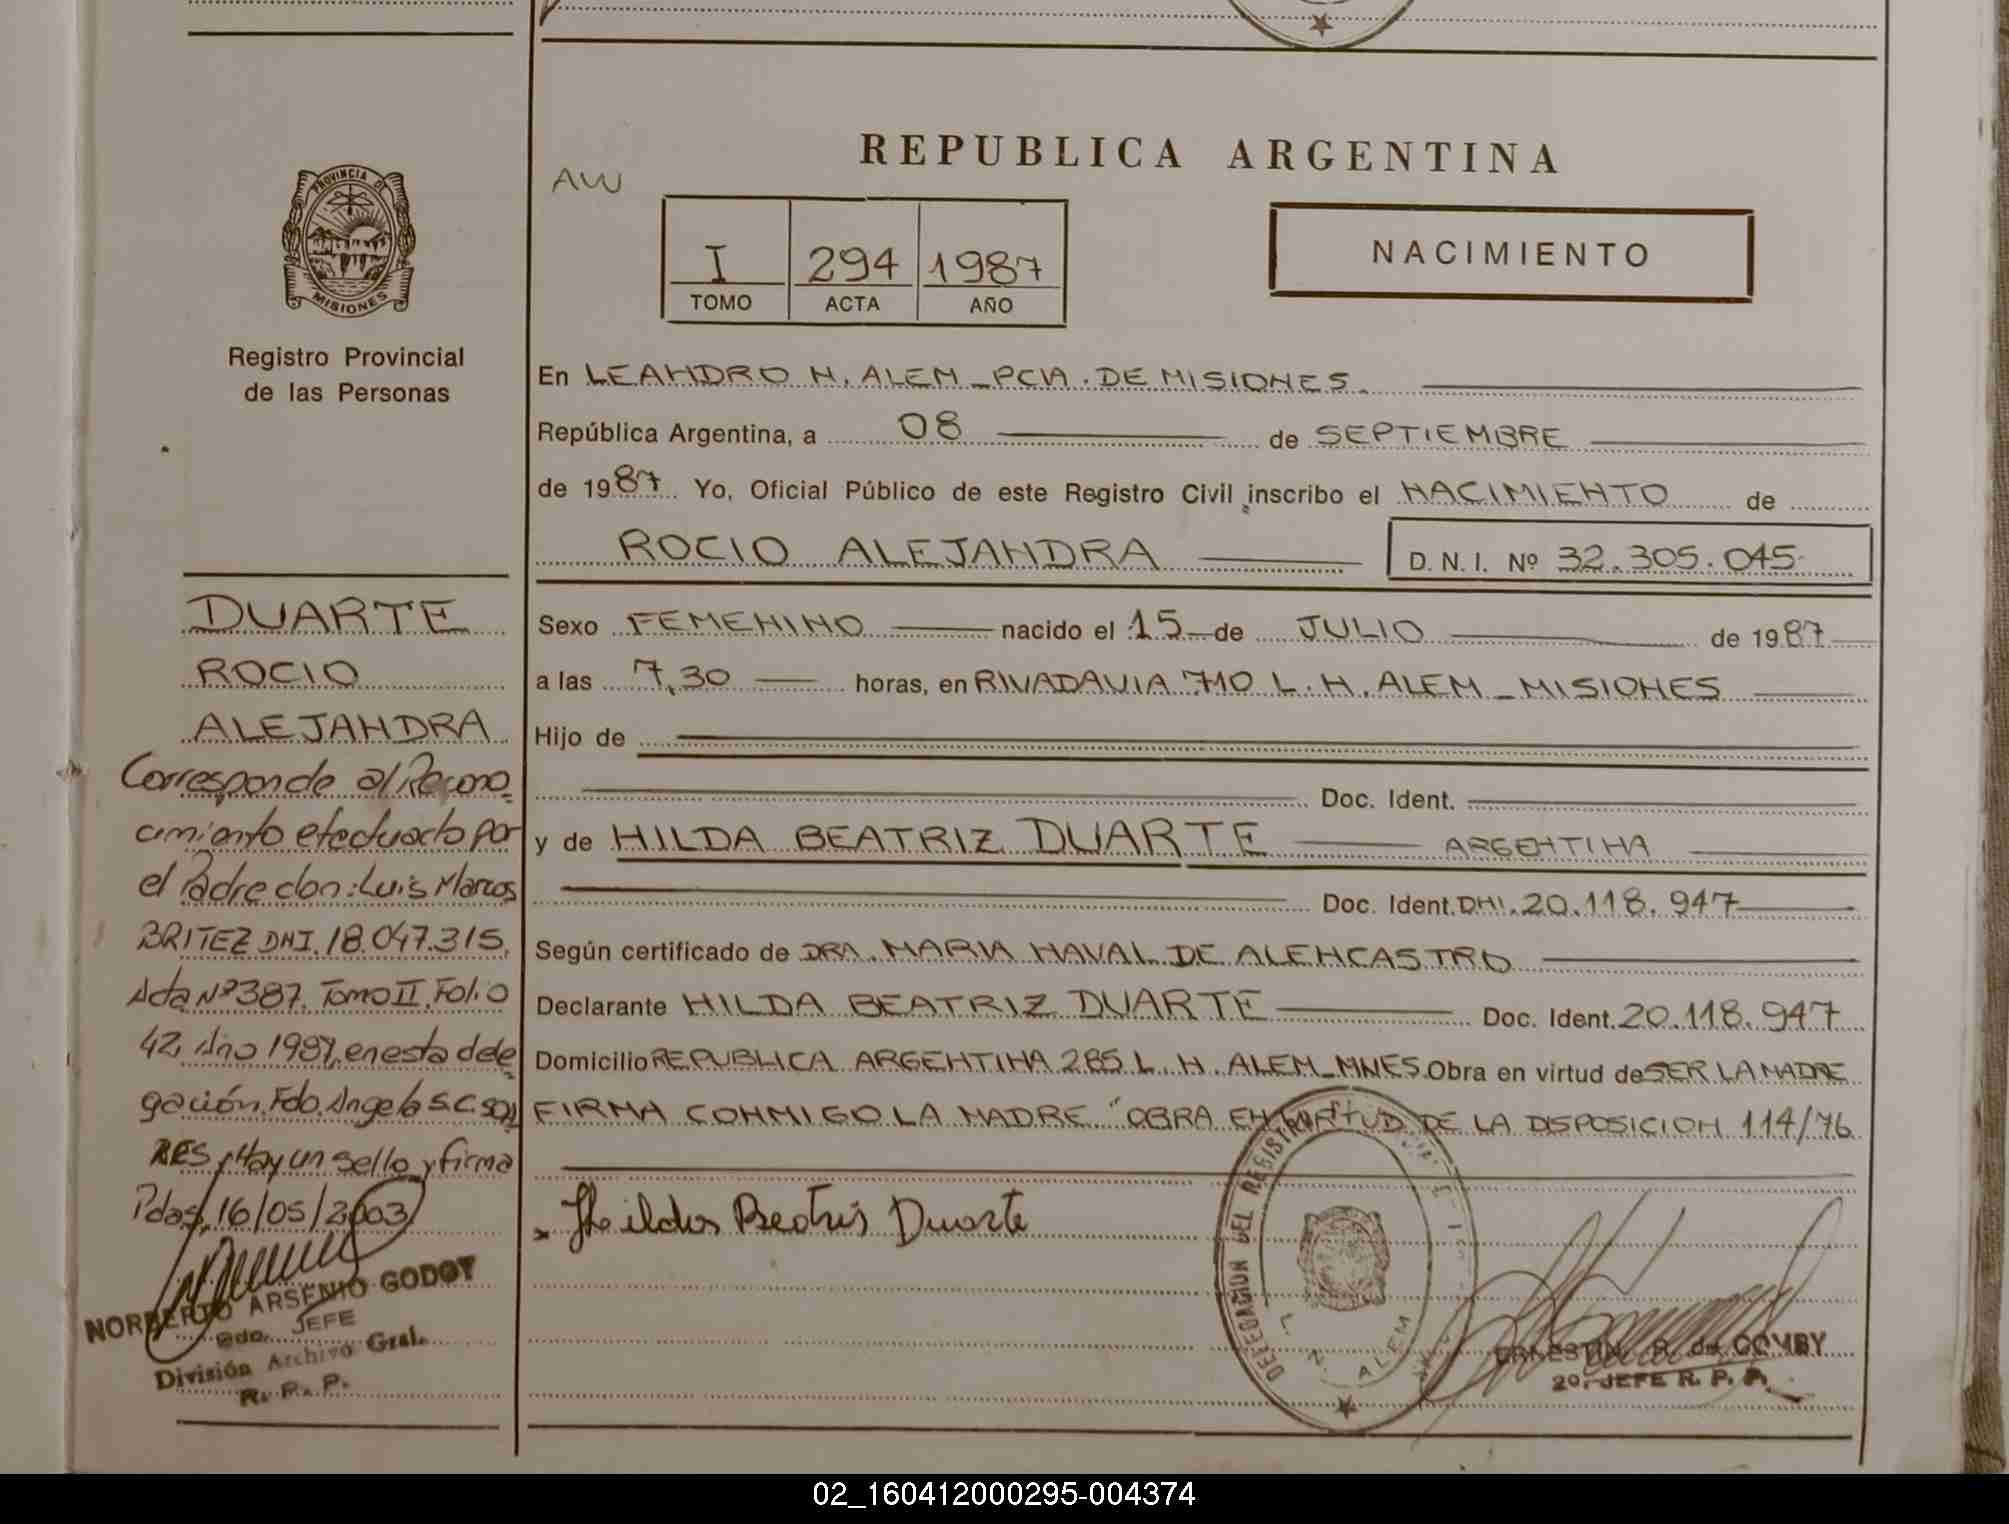 REPUBLICA ARGENTINA
AW
I 294 1987
TOMO ACTA AÑO
NACIMIENTO
PROVINCIA DE
MISIONES
Registro Provincial
de las Personas
En LEANDRO N. ALEM_PCIA. DE MISIONES.
República Argentina, a 08 de SEPTIEMBRE
de 1987 Yo, Oficial Público de este Registro Civil inscribo el NACIMIENTO de
ROCIO ALEJANDRA D. N. I. Nº 32.305.045
Sexo FEMENINO nacido el 15 de JULIO de 1987
a las 7,30 horas, en RIVADAVIA 710 L. N. ALEM_MISIONES
Hijo de
Doc. Ident.
y de HILDA BEATRIZ DUARTE ARGENTINA
Doc. Ident. DNI. 20.118.947
Según certificado de DRA. MARIA NAVAL DE ALENCASTRO
Declarante HILDA BEATRIZ DUARTE Doc. Ident. 20.118.947
Domicilio REPUBLICA ARGENTINA 285 L. N. ALEM_MNES. Obra en virtud de SER LA MADRE
FIRMA CONMIGO LA MADRE. "OBRA EN VIRTUD DE LA DISPOSICION 114/76
Hilda Beatris Duarte
DELEGACION DEL REGISTRO
L. N. ALEM
R. de COMBY
2º. JEFE R. P. P.
DUARTE
ROCIO
ALEJANDRA
Corresponde al Recono-
cimiento efectuado por
el Padre don: Luis Marcos
BRITEZ DNI. 18.047.315,
Acta Nº 387. Tomo II. Folio
42. Año 1987, en esta dele-
gación. Fdo. Angela S.C. SOA
RES. Hay un sello y firma
Pdas, 16/05/2003
NORBERTO ARSENIO GODOY
2do. JEFE
División Archivo Gral.
R. P. P.
02_160412000295-004374